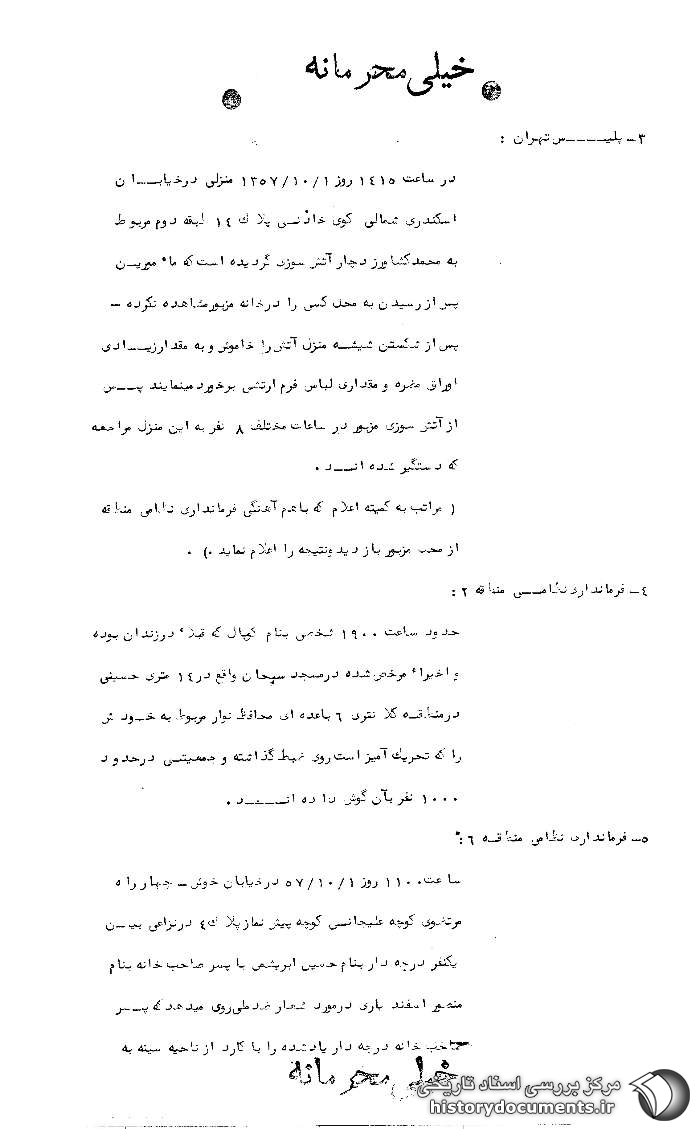 خیلی محرمانه
۳ـ پلیــــس تهران :
در ساعت ۱٤۱۵ روز ۱۳۵۷/۱۰/۱ منزلی درخیابـــان
اسکندری شمالی کوی پلاك ۱٤ طبقه دوم مربوط
به محمدکشاورز دچار آتش سوزی گردیده است که مأموریـن
پس از رسیدن به محل کسی را درخانه مزبورمشاهده نکرده –
پس از شکستن شیشـه منزل آتش را خاموش و به مقدارزیـادی
اوراق مضره و مقداری لباس فرم ارتشی برخورد مینمایند پــس
از آتش سوزی مزبور در ساعات مختلف ۸ نفر به این منزل مراجعه
که دستگیر شده انــد .
( مراتب به کمیته اعلام که باهم آهنگی فرمانداری نظامی منطقه
از محل مزبور بازدید ونتیجه را اعلام نماید .) .
٤ـ فرمانداری نظامــی منطقه ۲ :
حدود ساعت ۱۹۰۰ شخصی بنام که قبلاً درزندان بوده
و اخیراً مرخص شده درمسجد سبحان واقع در۱٤ متری حسینی
درمنطقـه کلانتری ٦ باعده ای محافظ نوار مربوط به خـودش
را که تحریك آمیز است روی ضبط گذاشته و جمعیتـی درحدود
۱۰۰۰ نفر بآن گوش داده انــــد .
۵ـ فرمانداری نظامی منطقـه ٦ :
ساعت ۱۱۰۰ روز ۵۷/۱۰/۱ درخیابان خوش – چهارراه
مرتضوی کوچه علیخانـی کوچه پیش نماز پلاك ٤ درنزاعی بیـن
یکنفر درجه دار بنام حسین ابریشمی با پسر صاحب خانه بنام
منصور اسفندیاری درمورد شعار ضدملی روی میدهد که پـسر
صاحب خانه درجه دار یادشده را با کارد از ناحیه سینه به
خیلی محرمانه
مرکز بررسی اسناد تاریخی
historydocuments.ir